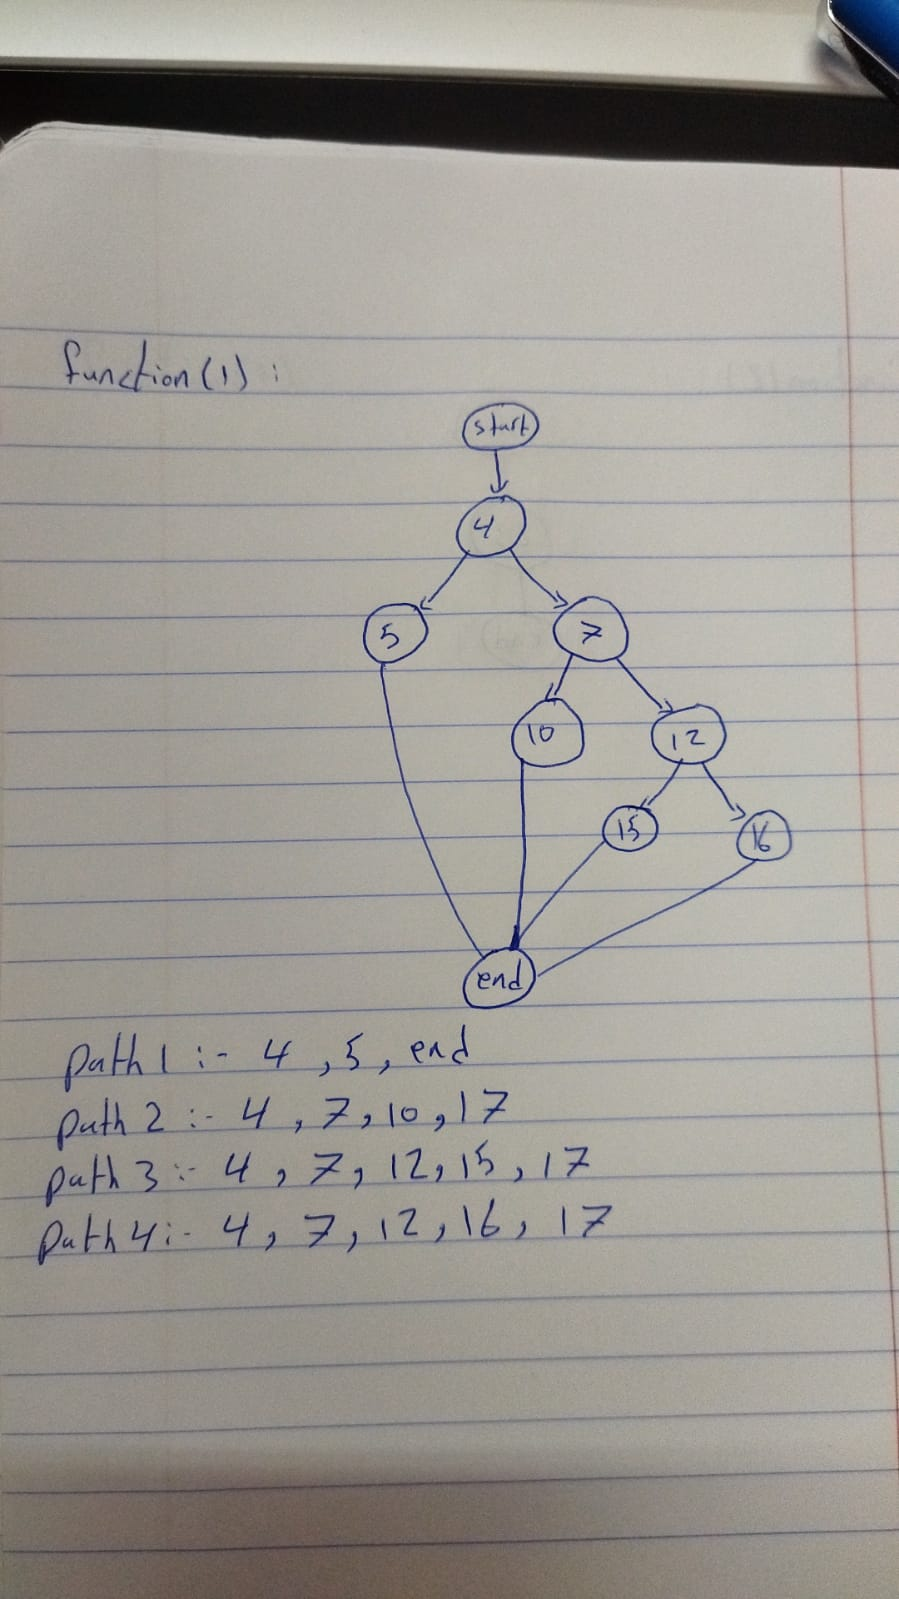 function(1) :
start
4
5
7
10
12
15
16
end
path 1 :- 4 , 5 , end
path 2 :- 4 , 7 , 10 , 17
path 3 :- 4 , 7 , 12 , 15 , 17
path 4 :- 4 , 7 , 12 , 16 , 17